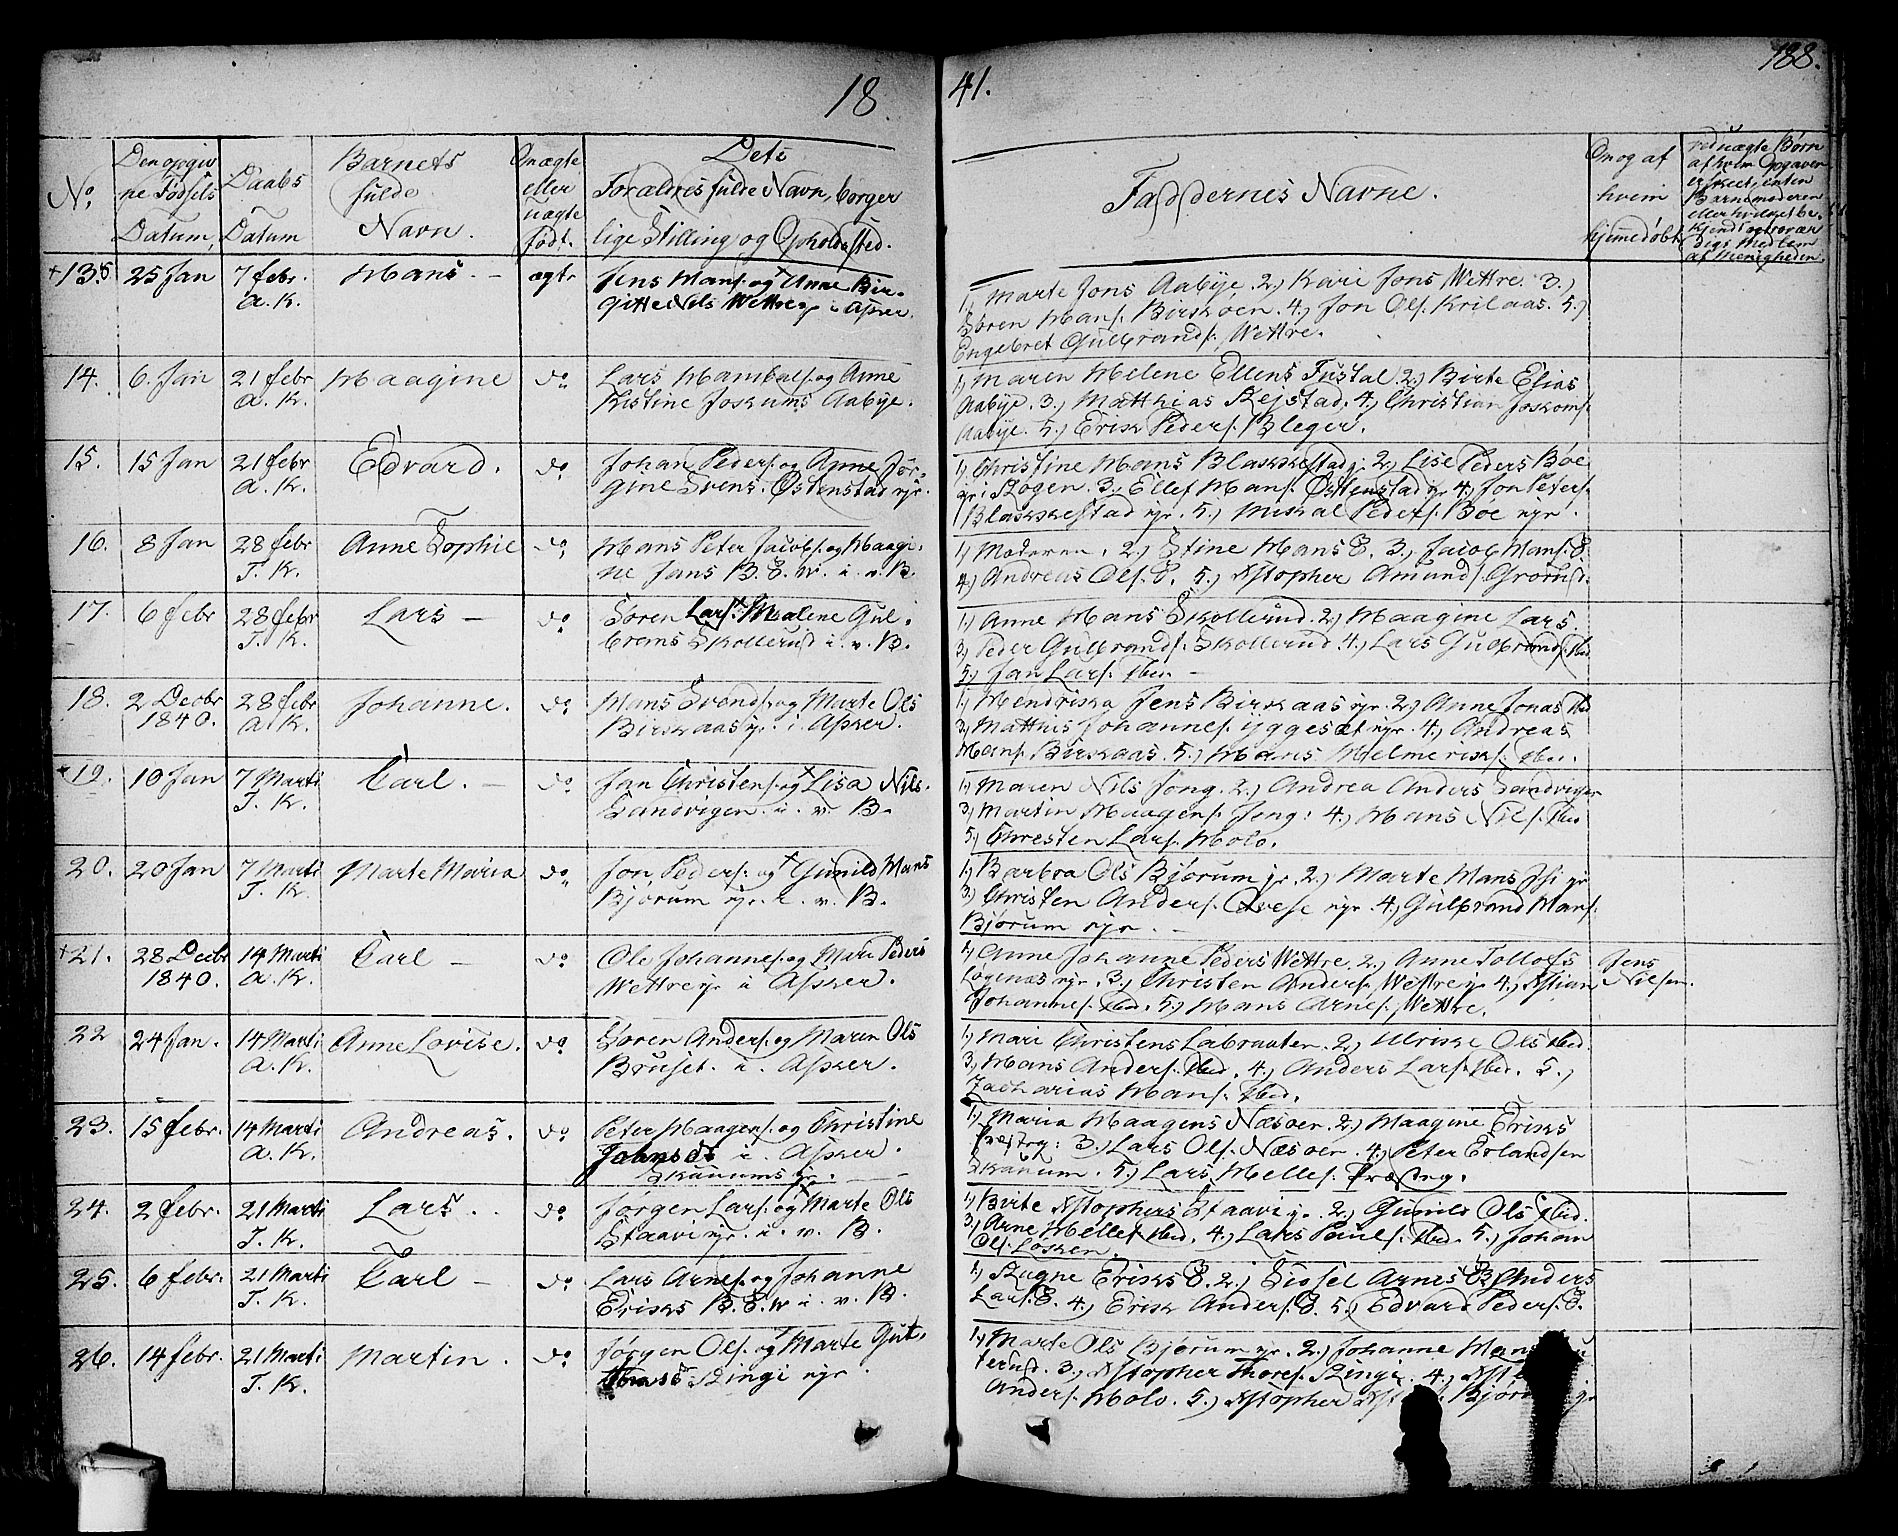 18 41.
188.
No
Den opgiv
ne Fødsels
Datum
Daabs
Datum
Barnets
fulde
Navn.
Om ægte
eller
uægte
født.
Dets
Forældres fulde Navn, borger
lige Stilling og Opholdssted.
Faddernes Navne.
Om og af
hvem
hjemmedøbt
ved uægte Børn
af hvem Opgaven
er skeet, enten
Barnemoderen
eller hvilket be-
kjendt og trovær
digt Medlem
af Menigheden.
+13. 25 Jan 7 febr Hans. – ægte Jens Hans. og Anne Bir-
A. K. gitte Nils Wettre i Asker.
1, Marte Jons Aabye. 2, Kari Jons Wettre. 3,
Søren Hans. 4, Jon Ols. 5,
Engebret Gulbrands. Wettre.
14. 6. Jan 21 febr Haagine do Lars og Anne
A. K. Kistine Aabye.
1, Maren Helene Ellens 2, Birte Elias
Aabye. 3, Matthias 4, Christian
Aabye. 5, Erik Peders. Bleger.
15. 15 Jan 21 febr Edvard. do Johan Peders. og Anne Jør-
A. K. gine Svens. Østenstad ejr.
1, Christine Hans Blakkestad 2, Lise Peders Bøe
i Skogen. 3, Ellef Hans. Østenstad 4, Jon Peters.
Blakkestad ejr. 5, Mikal Peders. Bøe ejr.
16. 8 Jan 28 febr Anne Sophie do Hans Peter Jacobs. og Haagi-
T. K. ne Jans B. E. W. i. v. B.
1, Moderen. 2, Stine Hans E. 3, Jacob Hans. E.
4, Andreas Ols. E. 5, Kstopher Amunds.
17. 6 febr 28 febr Lars – do Søren Lars. Malene Gul-
T. K. brans Skollerud i. v. B.
1, Anne Hans Skollerud. 2, Haagine Lars
3, Peder Gulbrands. Skollerud. 4, Lars Gulbrands. Ibed.
5, Jan Lars. Ibed. –
18. 2 Decbr 28 febr Johanne. do Hans Svends. og Marte Ols
1840. A. K. Birkaas ejr. i Asker.
1, Hendrikka Jens Birkaas ejr. 2, Anne Jonas Ibed
3, Matthis Johannes. 4, Andreas
Hans. Birkaas. 5, Hans Helmeriks. Ibed.
19. 10 Jan 7 Marti Carl. – do Jan Christens. og Lisa Nils.
T. K. Sandvigen i. v. B.
1, Maren Nils Jong. 2, Andrea Anders Sandvigen
3, Martin Haagens. Jong: 4, Hans Nils. Ibed
5, Christen Lars. Holo.
20. 20 Jan 7 Marti Marte Maria do Jon Peders. og Gunild Hans
T. K. Bjørum ejr. i. v. B.
1, Barbra Ols Bjørum 2, Marte Hans
3, Christen Anders. ejr. 4, Gulbrand Hans.
Bjørum ejr. –
+21. 28 Decbr 14 Marti Carl – do Ole Johannes. og Mari Peders
1840. A. K. Wettre i Asker.
1, Anne Johanne Peders Wettre. 2, Anne Tollofs
3, Christen Anders. Wettre 4, Kstian
Johannes. Ibed. 5, Hans Arnes. Wettre.
Jens
Nilsen.
22 24 Jan. 14 Marti Anne Lovise. do Søren Anders. og Maren Ols
A. K. Bruset. i. Asker.
1, Mari Christens Labraaten. 2, Ulrikke Ols Ibed.
3, Hans Anders. Ibed. 4, Anders Lars. Ibed. 5,
Zacharias Hans. Ibed.
23. 15 febr. 14 Marti Andreas. do Peter Haagens. og Christine
A. K. i. Asker.
1, Maria Haagens Næsøen. 2, Haagine Eriks
3, Lars Ols. Næsøen. 4, Peter Erlandsen
5, Lars Helles.
24. 2 febr. 21 Marti Lars. do Jørgen Lars. og Marte Ols
T. K. Staavi ejr. i. v. B.
1, Birte Kstophers Staavi 2, Gunild Ols Ibed.
3, Arne Hellef. Ibed. 4, Lars Paul. Ibed. 5, Johan
Ols. Løkken.
25. 6 febr. 21 Marti Carl – do Lars Arnes. og Johanne
T. K. Eriks B. E. W i. v. B.
1, Eriks E. 2, Sissel Arnes E. Anders
Lars. E. 4, Erik Anders. E. 5, Edvard Peders. E.
26. 14 febr. 21 Marti Martin. do Jørgen Ols. og Marte Gut-
T. K. Ringi ejr.
1, Marte Ols Bjørum 2, Johanne Hans
3, Kstopher Thores. Ringi. 4,
Anders. Holo. 5, Kstopher